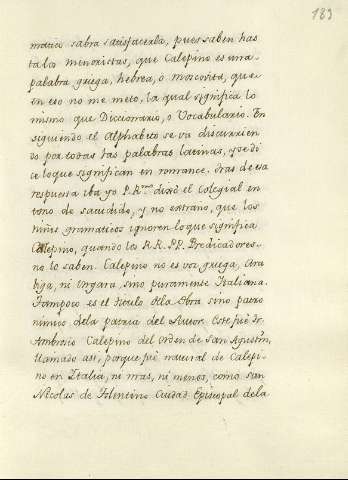 183
maria sabra satisfacerla, pues saben has
ta los menoristas, que Calepino es una
palabra griega, hebrea, o moscovita, que
en eso no me meto, la qual significa lo
mismo que Diccionario, o Vocabulario. En
siguiendo el Alphabeto se va discurrien
do por todas las palabras latinas, y se di
ce lo que significan en romance. Tras de esa
respuesta iba yo P. Rmo dixo el Colegial en
tono de sacudido, y no extraño, que los
niños gramaticos ignoren lo que significa
Calepino, quando los R.R. P.P. Predicadores
no lo saben. Calepino no es voz griega, Ara
biga, ni Ungara, sino puramente Italiana.
Tampoco es el titulo de la Obra, sino patro
nimico de la patria del Autor. Este fue Fr.
Ambrosio Calepino del orden de San Agustin,
llamado asi, porque fue natural de Calepi
no en Italia, ni mas, ni menos, como San
Nicolas de Tolentino Ciudad Episcopal de la